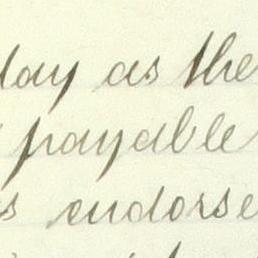 day as the
payable
s endorse